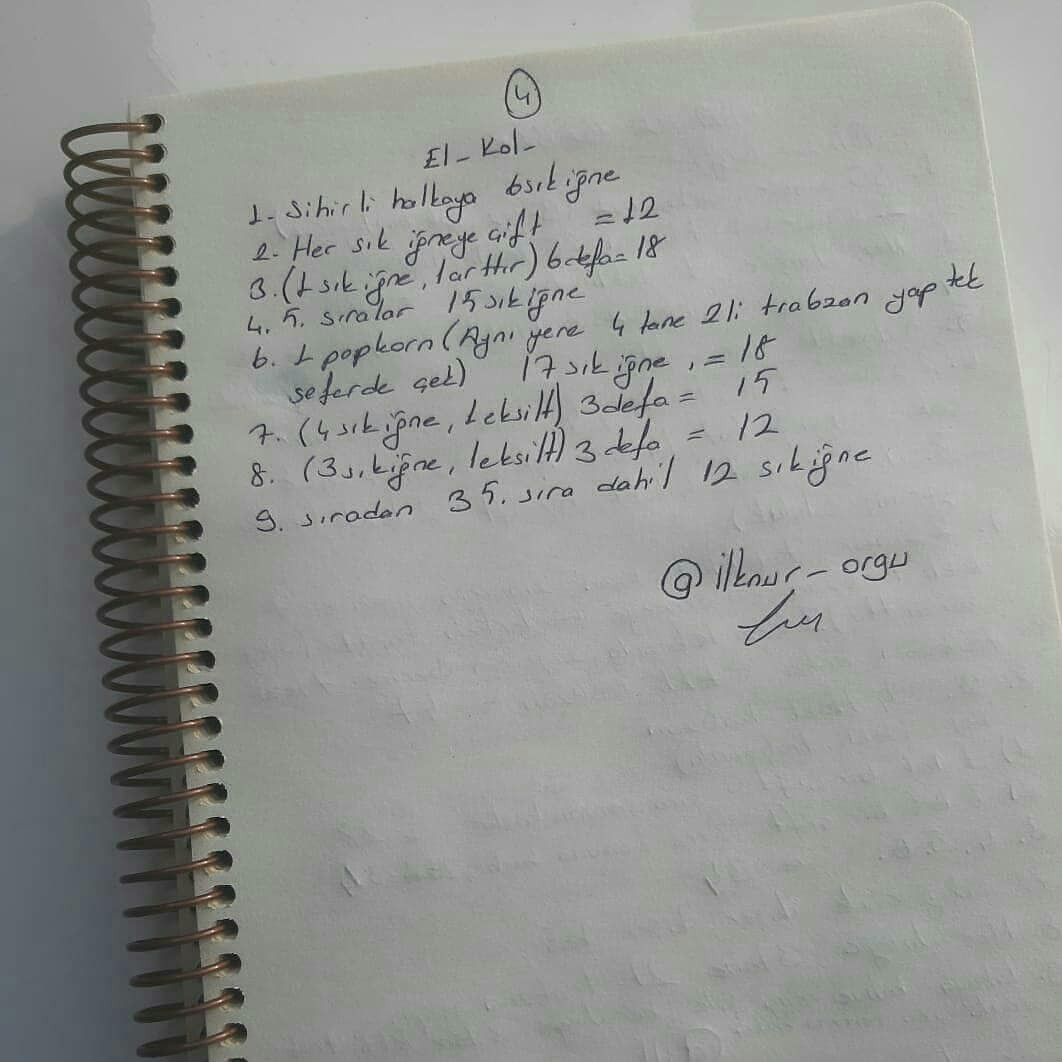 4
El - Kol -
1- Sihirli halkaya 6 sık iğne
2- Her sık iğneye çift = 12
3. (1 sık iğne, 1 arttır) 6 defa = 18
4. 5. sıralar 15 sık iğne
6. 1 popkorn (Aynı yere 4 tane 2li trabzan yap tek
seferde çek) 17 sık iğne, = 18
7. (4 sık iğne, 1 eksilt) 3 defa = 15
8. (3 sık iğne, 1 eksilt) 3 defa = 12
9. sıradan 35. sıra dahil 12 sık iğne
@ilknur_orgu